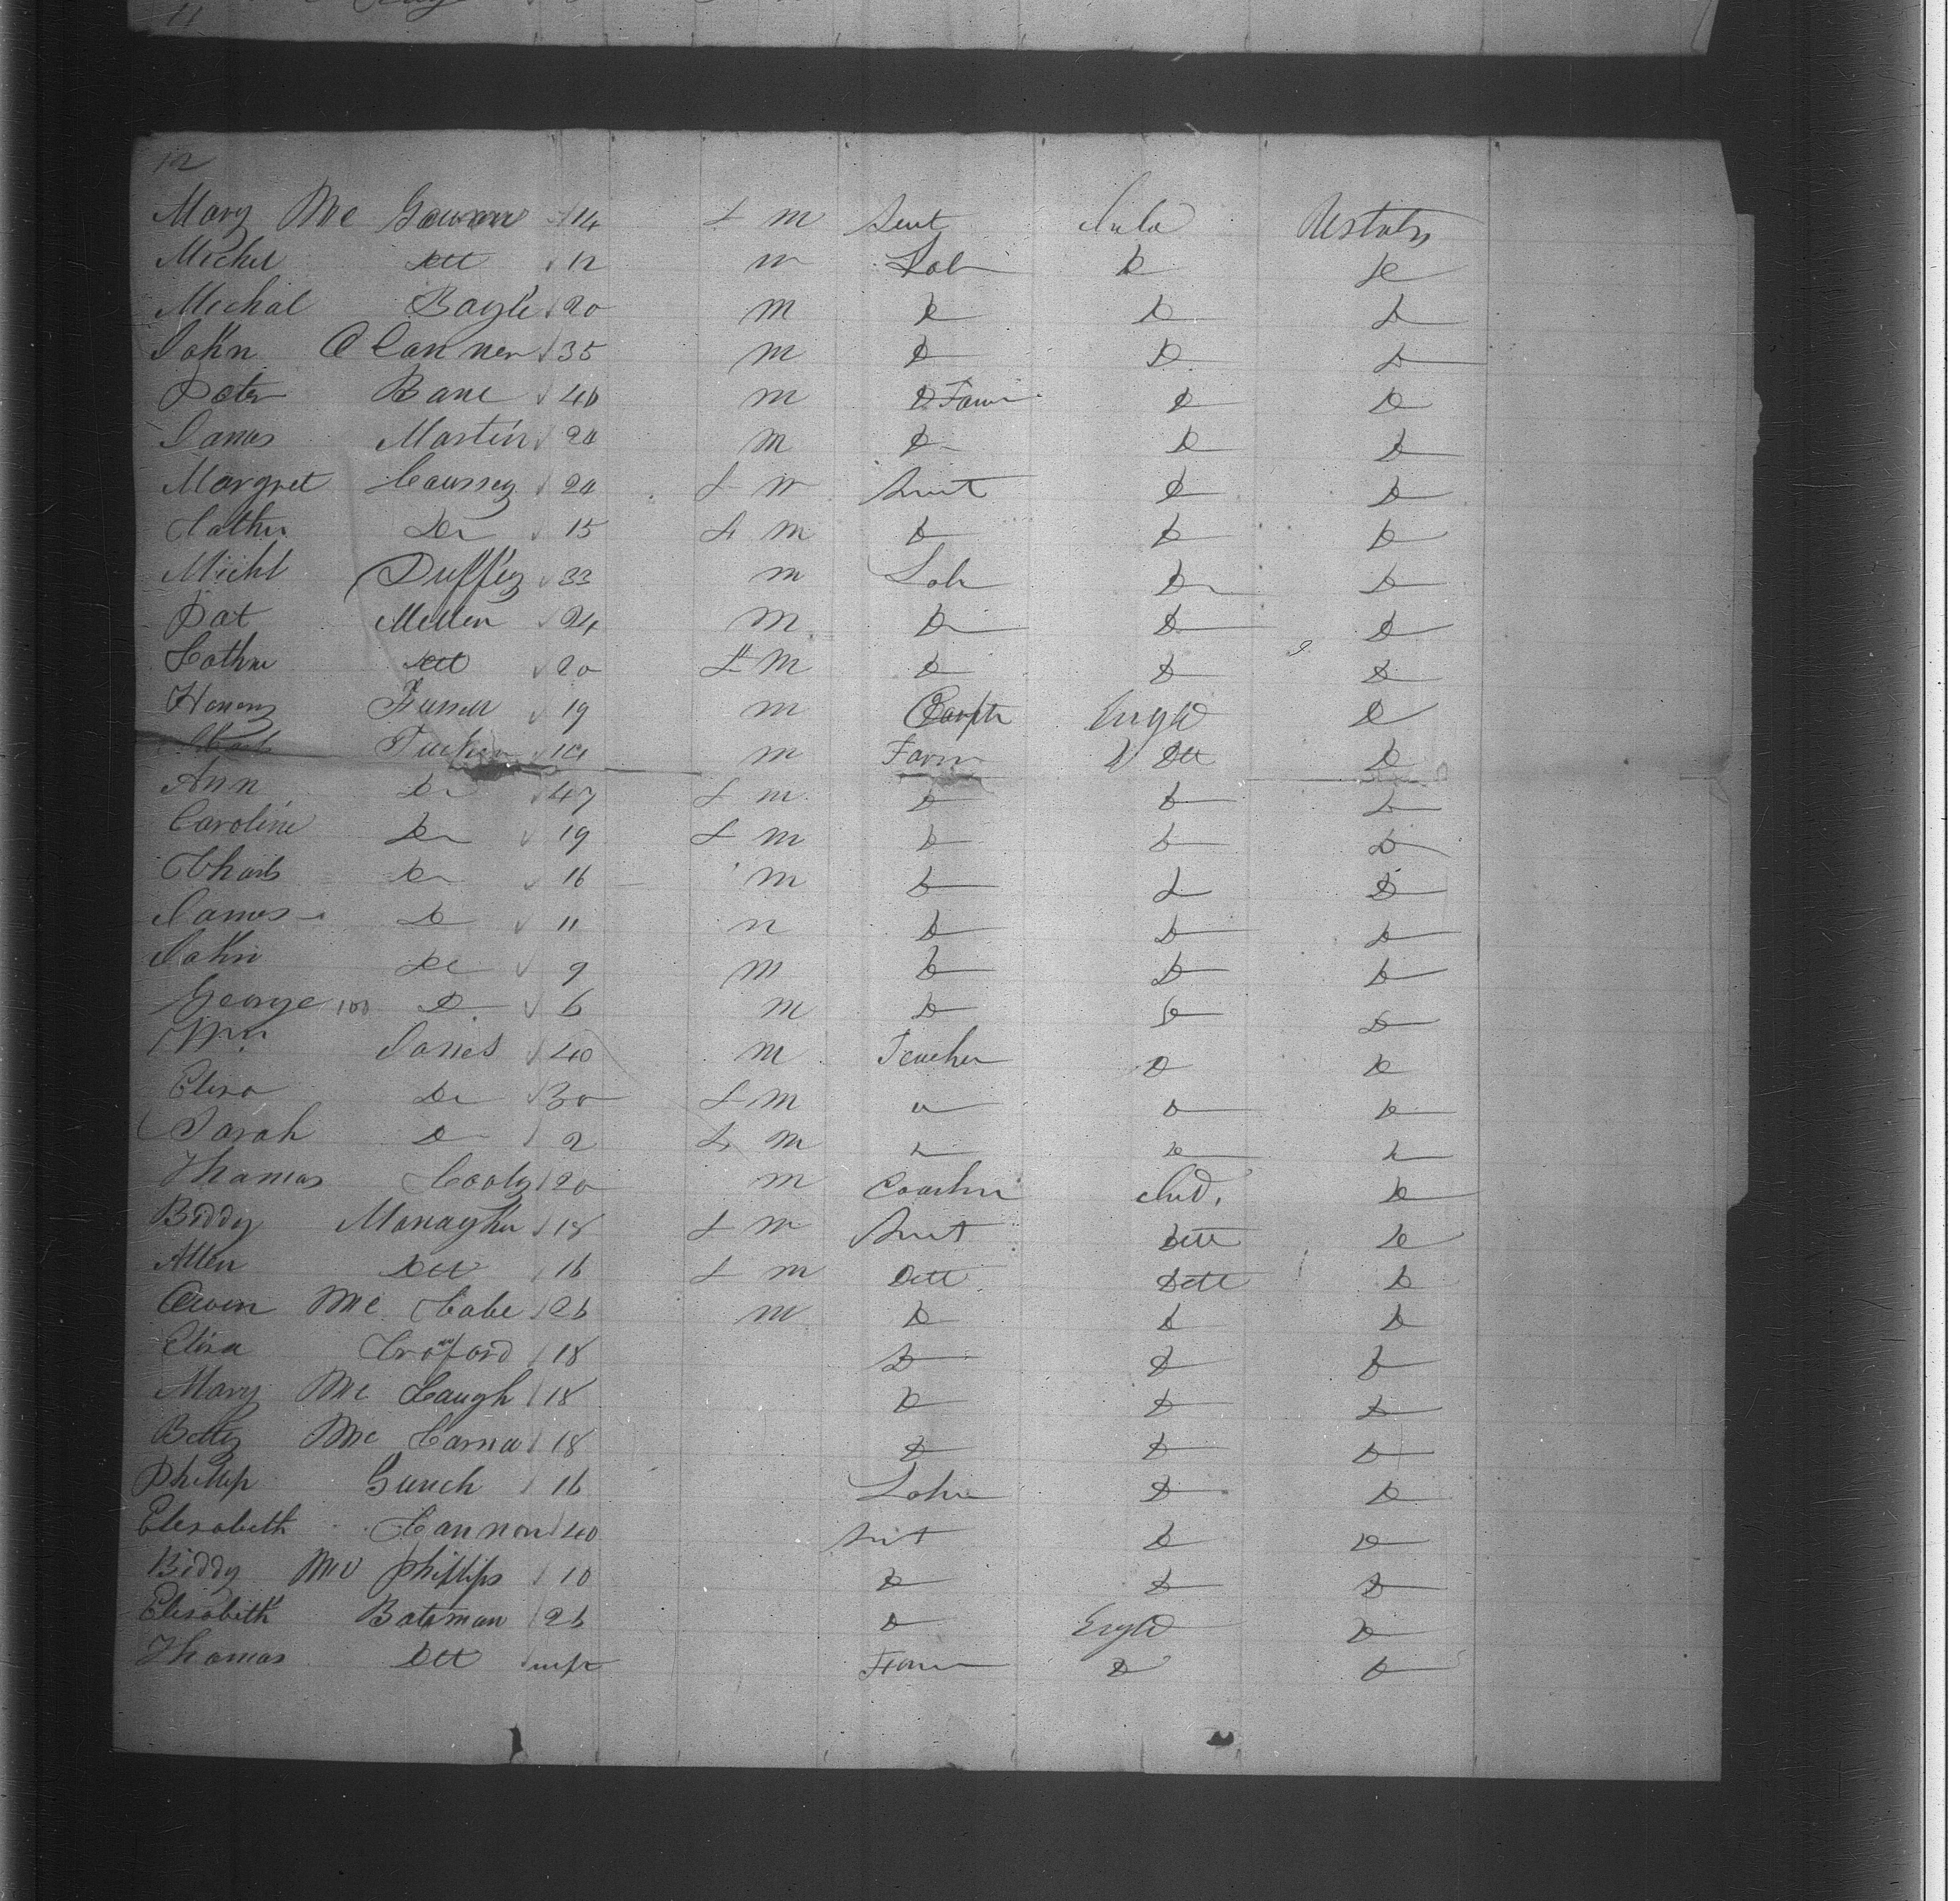 12
Mary Mc Gowan 14 f m Sert Irla Ustats
Michel Dtt 12 m Lab D D
Michal Boyle 20 m D D D
John O Conner 35 m D D D
Peter Bane 40 m D Farm D D
James Martin 20 m D D D
Margret Caussey 20 f m Sert D D
Cathn Do 15 f m D D D
Michl Duffey 33 m Lab D D
Pat Mellen 24 m D D D
Cathn Dtt 20 f m D D D
Henery 19 m Carpt Engld D
m Farm Dtt D
Ann Do 47 f m D D D
Caroline Do 19 f m D D D
Charls Do 16 m D D D
James D 11 m D D D
John Do 9 m D D D
George 100 D 6 m D D D
Wm Jones 40 m Teacher D D
Elisa Do 30 f m D D
Sarah D 2 f m D D
Thomas Cooly 20 m Coachm Ird. D
Biddy Monaghn 18 f m Sert Dtt D
Allen Dtt 16 f m Dtt Dtt D
Owen Mc Cabe 26 m D D D
Elisa Croford 18 D D D
Mary Mc Caugh 18 D D D
Betty Mc Carna 18 D D D
Phillip Gunch 16 Labr D D
Elesabeth Cannon 40 Sert D D
Biddy Mc Phillips 10 D D D
Elisabeth Bateman 26 D Engld D
Thomas Dtt inft Farm D D